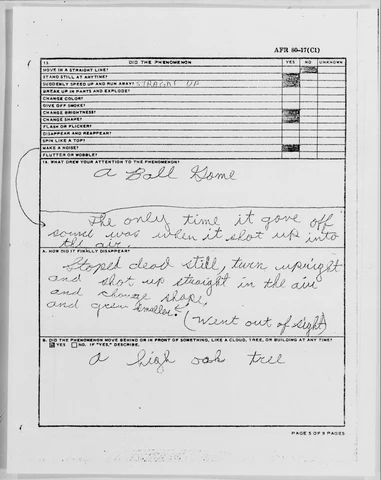 AFR 80-17(C1)
13. DID THE PHENOMENON YES NO UNKNOWN
MOVE IN A STRAIGHT LINE?
STAND STILL AT ANYTIME?
SUDDENLY SPEED UP AND RUN AWAY? STRAGHT UP
BREAK UP IN PARTS AND EXPLODE?
CHANGE COLOR?
GIVE OFF SMOKE?
CHANGE BRIGHTNESS?
CHANGE SHAPE?
FLASH OR FLICKER?
DISAPPEAR AND REAPPEAR?
SPIN LIKE A TOP?
MAKE A NOISE?
FLUTTER OR WOBBLE?
14. WHAT DREW YOUR ATTENTION TO THE PHENOMENON?
a Ball Game
The only time it gave off
sound was when it shot up into
the air.
A. HOW DID IT FINALLY DISAPPEAR?
Stoped dead still, turn upright
and shot up straight in the air
and change shape,
and grew smaller.
(Went out of sight)
B. DID THE PHENOMENON MOVE BEHIND OR IN FRONT OF SOMETHING, LIKE A CLOUD, TREE, OR BUILDING AT ANY TIME?
YES NO. IF "YES," DESCRIBE.
a high oak tree
PAGE 5 OF 9 PAGES